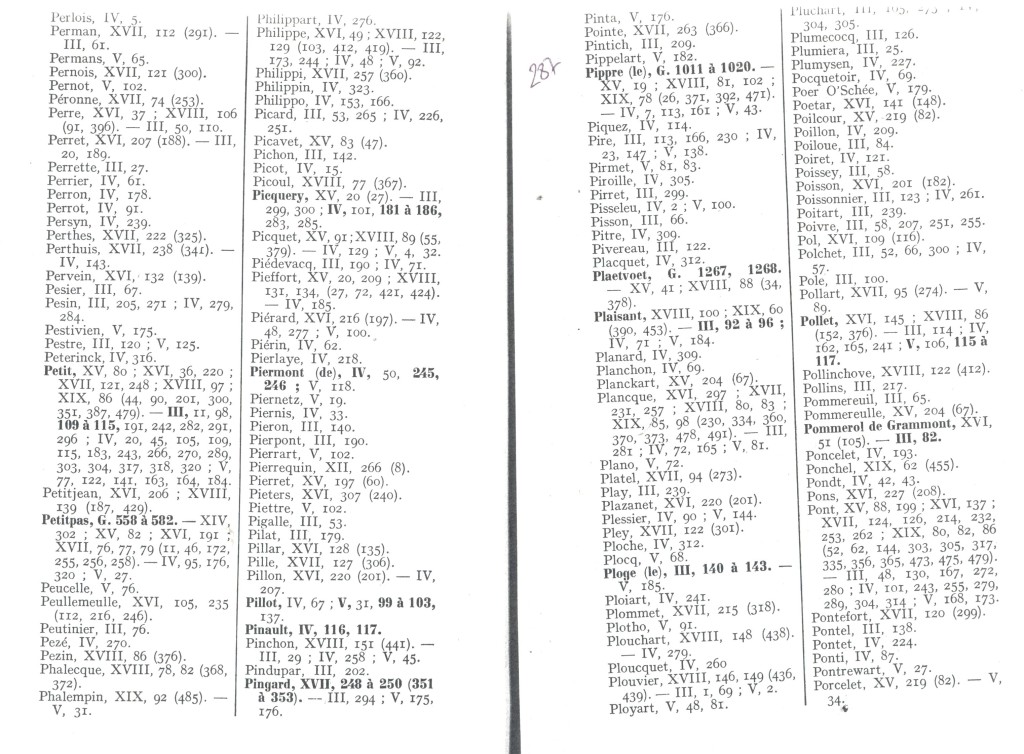 Perlois, IV, 5.
Perman, XVII, 112 (291). —
III, 61.
Permans, V, 65.
Pernois, XVII, 121 (300).
Pernot, V, 102.
Péronne, XVII, 74 (253).
Perre, XVI, 37 ; XVIII, 106
(91, 396). — III, 50, 110.
Perret, XVI, 207 (188). — III,
20, 189.
Perrette, III, 27.
Perrier, IV, 61.
Perron, IV, 178.
Perrot, IV, 91.
Persyn, IV, 239.
Perthes, XVII, 222 (325).
Perthuis, XVII, 238 (341). —
IV, 143.
Pervein, XVI, 132 (139).
Pesier, III, 67.
Pesin, III, 205, 271 ; IV, 279,
284.
Pestivien, V, 175.
Pestre, III, 120 ; V, 125.
Peterinck, IV, 316.
Petit, XV, 80 ; XVI, 36, 220 ;
XVII, 121, 248 ; XVIII, 97 ;
XIX, 86 (44, 90, 201, 300,
351, 387, 479). — III, 11, 98,
109 à 115, 191, 242, 282, 291,
296 ; IV, 20, 45, 105, 109,
115, 183, 243, 266, 270, 289,
303, 304, 317, 318, 320 ; V,
77, 122, 141, 163, 164, 184.
Petitjean, XVI, 206 ; XVIII,
139 (187, 429).
Petitpas, G. 558 à 582. — XIV,
302 ; XV, 82 ; XVI, 191 ;
XVII, 76, 77, 79 (11, 46, 172,
255, 256, 258). — IV, 95, 176,
320 ; V, 27.
Peucelle, V, 76.
Peullemeulle, XVI, 105, 235
(112, 216, 246).
Peutinier, III, 76.
Pezé, IV, 270.
Pezin, XVIII, 86 (376).
Phalecque, XVIII, 78, 82 (368,
372).
Phalempin, XIX, 92 (485). —
V, 31.
Philippart, IV, 276.
Philippe, XVI, 49 ; XVIII, 122,
129 (103, 412, 419). — III,
173, 244 ; IV, 48 ; V, 92.
Philippi, XVII, 257 (360).
Philippin, IV, 323.
Philippo, IV, 153, 166.
Picard, III, 53, 265 ; IV, 226,
251.
Picavet, XV, 83 (47).
Pichon, III, 142.
Picot, IV, 15.
Picoul, XVIII, 77 (367).
Piequery, XV, 20 (27). — III,
299, 300 ; IV, 101, 181 à 186,
283, 285.
Picquet, XV, 91 ; XVIII, 89 (55,
379). — IV, 129 ; V, 4, 32.
Piédevacq, III, 190 ; IV, 71.
Pieffort, XV, 20, 209 ; XVIII,
131, 134, (27, 72, 421, 424).
— IV, 185.
Piérard, XVI, 216 (197). — IV,
48, 277 ; V, 100.
Piérin, IV, 62.
Pierlaye, IV, 218.
Piermont (de), IV, 50, 245,
246 ; V, 118.
Piernetz, V, 19.
Piernis, IV, 33.
Pieron, III, 140.
Pierpont, III, 190.
Pierrart, V, 102.
Pierrequin, XII, 266 (8).
Pierret, XV, 197 (60).
Pieters, XVI, 307 (240).
Piettre, V, 102.
Pigalle, III, 53.
Pilat, III, 179.
Pillar, XVI, 128 (135).
Pille, XVII, 127 (306).
Pillon, XVI, 220 (201). — IV,
207.
Pillot, IV, 67 ; V, 31, 99 à 103,
137.
Pinault, IV, 116, 117.
Pinchon, XVIII, 151 (441). —
III, 29 ; IV, 258 ; V, 45.
Pindupar, III, 202.
Pingard, XVII, 248 à 250 (351
à 353). — III, 294 ; V, 175,
176.
287
Pinta, V, 176.
Pointe, XVII, 263 (366).
Pintich, III, 209.
Pippelart, V, 182.
Pippre (le), G. 1011 à 1020. —
XV, 19 ; XVIII, 81, 102 ;
XIX, 78 (26, 371, 392, 471).
— IV, 7, 113, 161 ; V, 43.
Piquez, IV, 114.
Pire, III, 113, 166, 230 ; IV,
23, 147 ; V, 138.
Pirmet, V, 81, 83.
Piroille, IV, 305.
Pirret, III, 299.
Pisseleu, IV, 2 ; V, 100.
Pisson, III, 66.
Pitre, IV, 309.
Pivereau, III, 122.
Placquet, IV, 312.
Plaetvoet, G. 1267, 1268.
— XV, 41 ; XVIII, 88 (34,
378).
Plaisant, XVIII, 100 ; XIX, 60
(390, 453). — III, 92 à 96 ;
IV, 71 ; V, 184.
Planard, IV, 309.
Planchon, IV, 69.
Planckart, XV, 204 (67).
Plancque, XVI, 297 ; XVII,
231, 257 ; XVIII, 80, 83 ;
XIX, 85, 98 (230, 334, 360,
370, 373, 478, 491). — III,
281 ; IV, 72, 165 ; V, 81.
Plano, V, 72.
Platel, XVII, 94 (273).
Play, III, 239.
Plazanet, XVI, 220 (201).
Plessier, IV, 90 ; V, 144.
Pley, XVII, 122 (301).
Ploche, IV, 312.
Plocq, V, 68.
Ploge (le), III, 140 à 143. —
V, 185.
Ploiart, IV, 241.
Plommet, XVII, 215 (318).
Plotho, V, 91.
Plouchart, XVIII, 148 (438).
— IV, 279.
Ploucquet, IV, 260
Plouvier, XVIII, 146, 149 (436,
439). — III, 1, 69 ; V, 2.
Ployart, V, 48, 81.
Pluchart, III,
304, 305.
Plumecocq, III, 126.
Plumiera, III, 25.
Plumysen, IV, 227.
Pocquetoir, IV, 69.
Poer O'Schée, V, 179.
Poetar, XVI, 141 (148).
Poilcour, XV, 219 (82).
Poillon, IV, 209.
Poiloue, III, 84.
Poiret, IV, 121.
Poissey, III, 58.
Poisson, XVI, 201 (182).
Poissonnier, III, 123 ; IV, 261.
Poitart, III, 239.
Poivre, III, 58, 207, 251, 255.
Pol, XVI, 109 (116).
Polchet, III, 52, 66, 300 ; IV,
57.
Pole, III, 100.
Pollart, XVII, 95 (274). — V,
89.
Pollet, XVI, 145 ; XVIII, 86
(152, 376). — III, 114 ; IV,
162, 165, 241 ; V, 106, 115 à
117.
Pollinchove, XVIII, 122 (412).
Pollins, III, 217.
Pommereuil, III, 65.
Pommereulle, XV, 204 (67).
Pommerol de Grammont, XVI,
51 (105). — III, 82.
Poncelet, IV, 193.
Ponchel, XIX, 62 (455).
Pondt, IV, 42, 43.
Pons, XVI, 227 (208).
Pont, XV, 88, 199 ; XVI, 137 ;
XVII, 124, 126, 214, 232,
253, 262 ; XIX, 80, 82, 86
(52, 62, 144, 303, 305, 317,
335, 356, 365, 473, 475, 479).
— III, 48, 130, 167, 272,
280 ; IV, 101, 243, 255, 279,
289, 304, 314 ; V, 168, 173.
Pontefort, XVII, 120 (299).
Pontel, III, 138.
Pontet, IV, 224.
Ponti, IV, 87.
Pontrewart, V, 27.
Porcelet, XV, 219 (82). — V,
34.